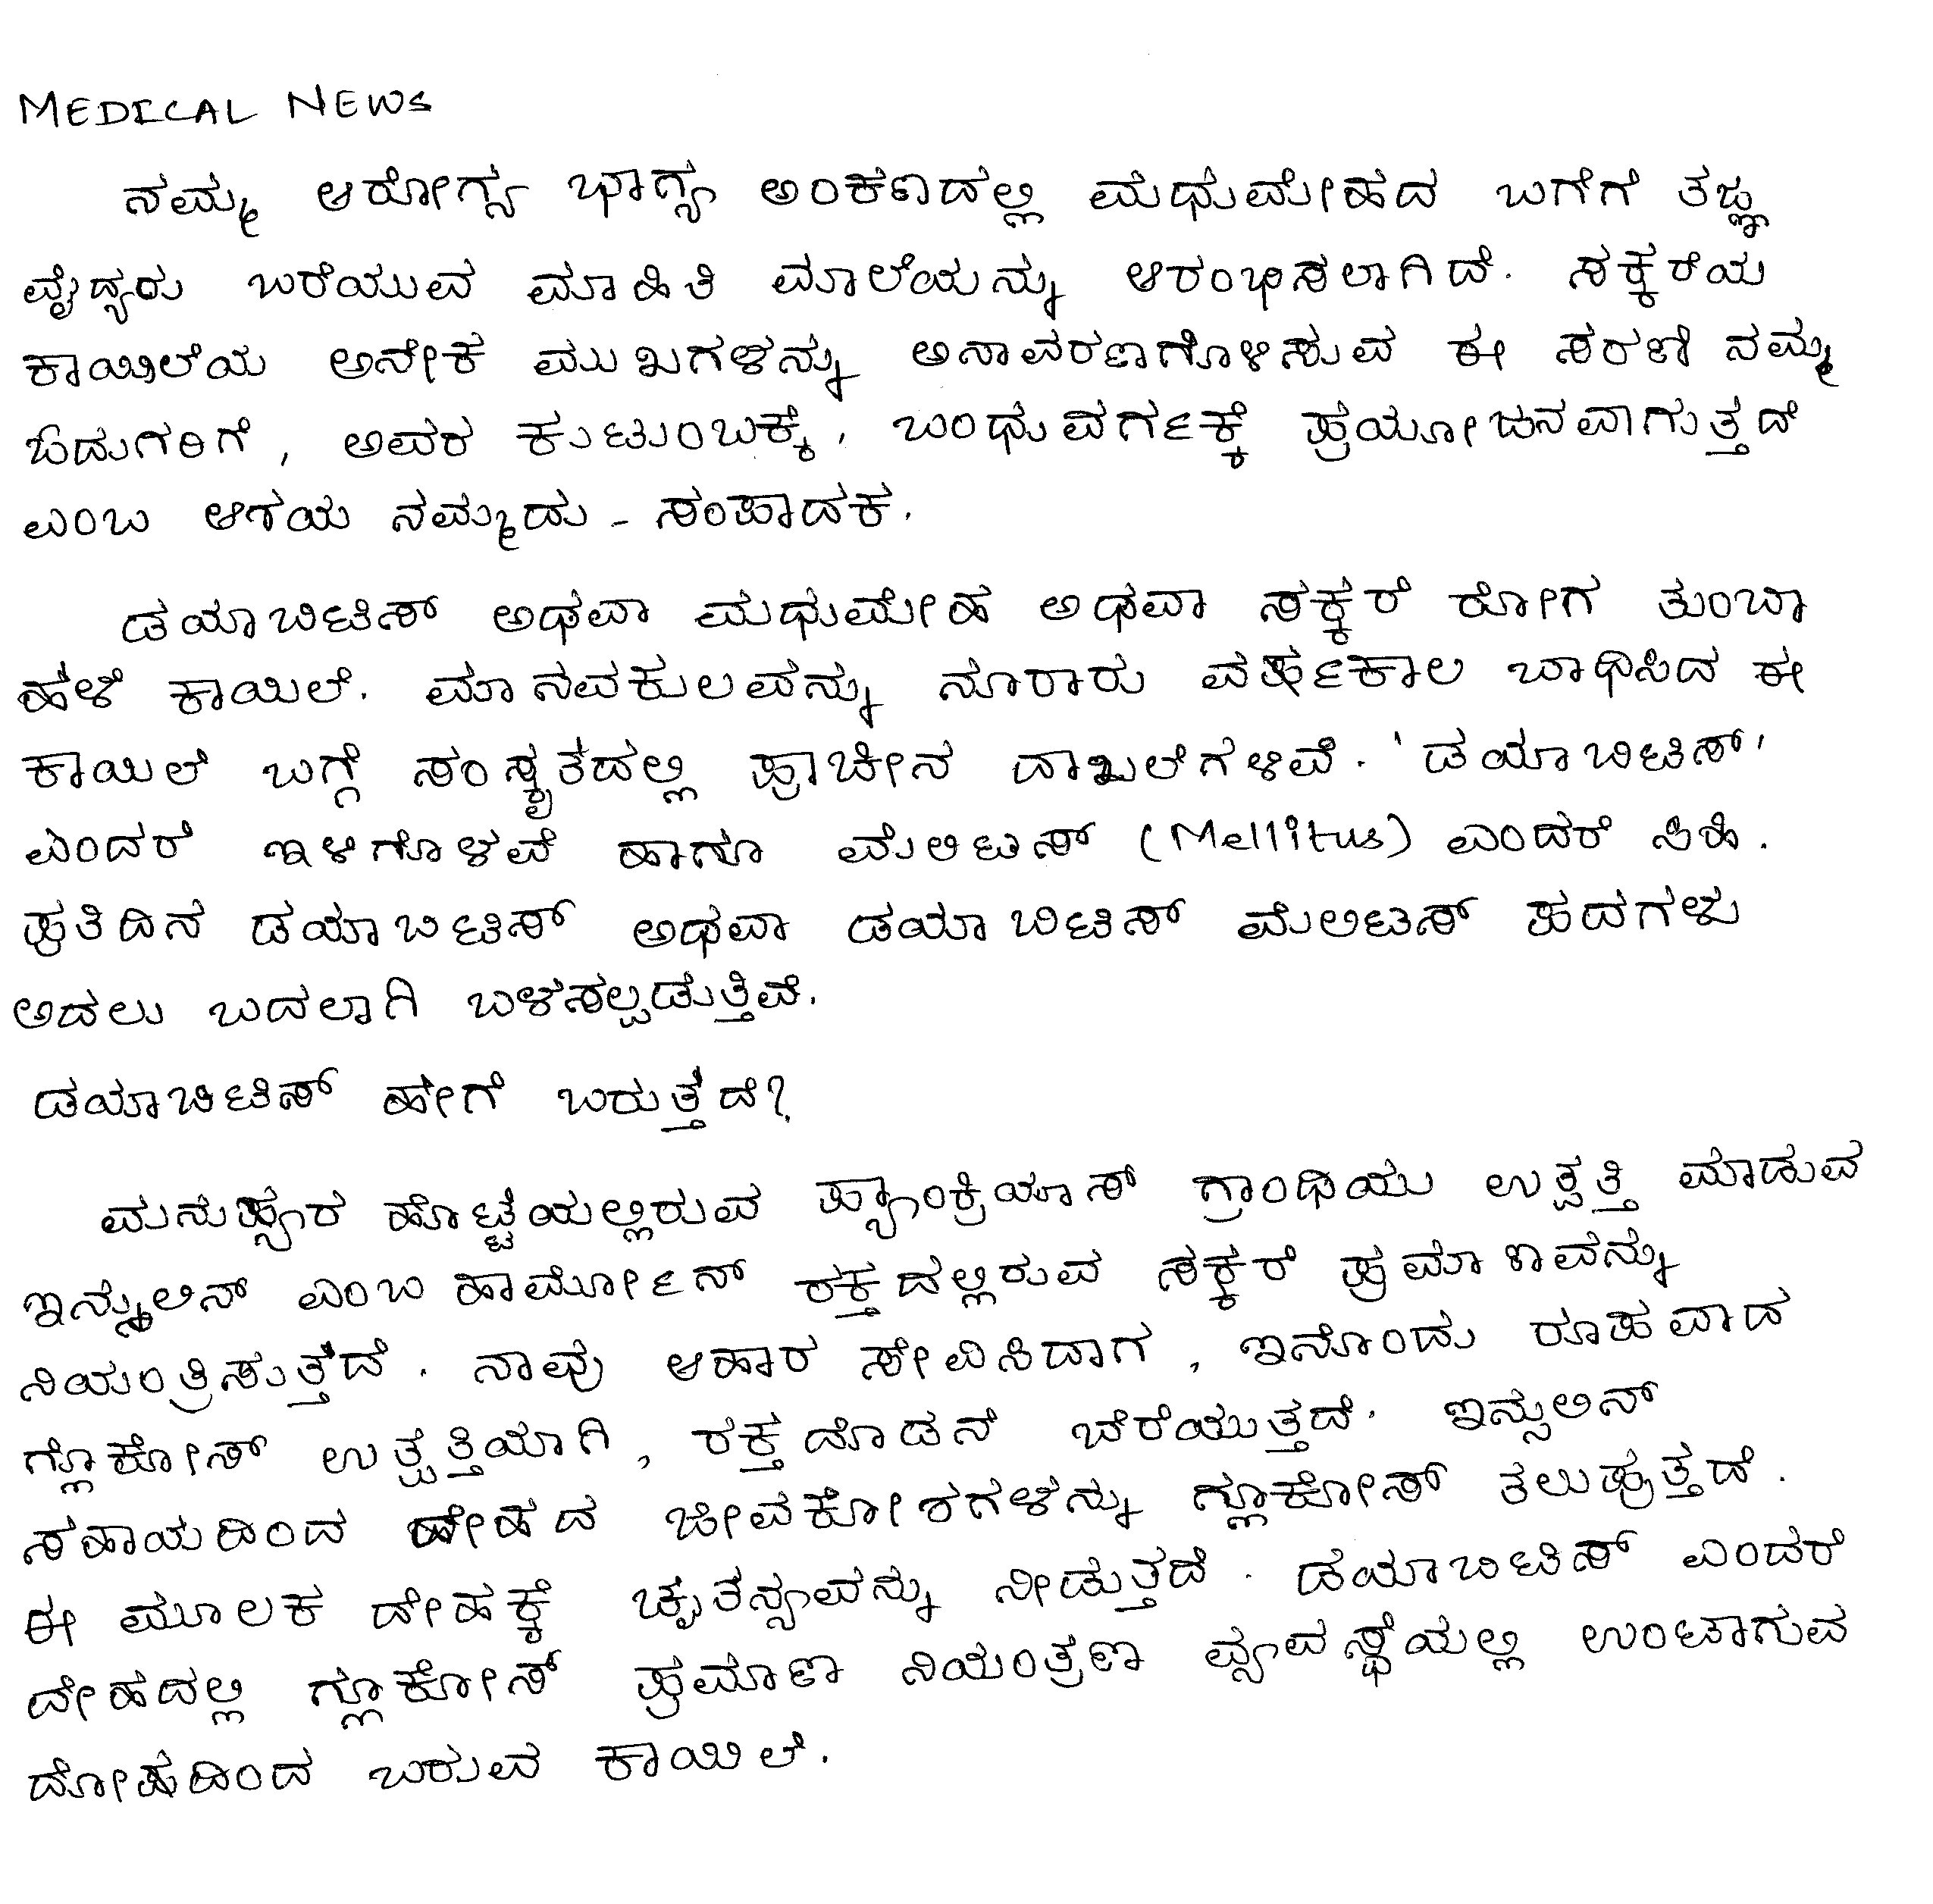 MEDICAL NEWS
ನಮ್ಮ ಆರೋಗ್ಯ ಭಾಗ್ಯ ಅಂಕಣದಲ್ಲಿ ಮಧುಮೇಹದ ಬಗೆಗೆ ತಜ್ಞ
ವೈದ್ಯರು ಬರೆಯುವ ಮಾಹಿತಿ ಮಾಲೆಯನ್ನು ಆರಂಭಿಸಲಾಗಿದೆ. ಸಕ್ಕರೆಯ
ಕಾಯಿಲೆಯ ಅನೇಕ ಮುಖಗಳನ್ನು ಅನಾವರಣಗೊಳಿಸುವ ಈ ಸರಣಿ ನಮ್ಮ
ಓದುಗರಿಗೆ, ಅವರ ಕುಟುಂಬಕ್ಕೆ, ಬಂಧುವರ್ಗಕ್ಕೆ ಪ್ರಯೋಜನವಾಗುತ್ತದೆ
ಎಂಬ ಆಶಯ ನಮ್ಮದು - ಸಂಪಾದಕ.
ಡಯಾಬಿಟಿಸ್ ಅಥವಾ ಮಧುಮೇಹ ಅಥವಾ ಸಕ್ಕರೆ ರೋಗ ತುಂಬಾ
ಹಳೆ ಕಾಯಿಲೆ. ಮಾನವಕುಲವನ್ನು ನೂರಾರು ವರ್ಷಕಾಲ ಬಾಧಿಸಿದ ಈ
ಕಾಯಿಲೆ ಬಗ್ಗೆ ಸಂಸ್ಕೃತದಲ್ಲಿ ಪ್ರಾಚೀನ ದಾಖಲೆಗಳಿವೆ. 'ಡಯಾಬಿಟಿಸ್'
ಎಂದರೆ ಇಳಿಗೊಳವೆ ಹಾಗೂ ಮೆಲಿಟಸ್ (Mellitus) ಎಂದರೆ ಸಿಹಿ.
ಪ್ರತಿದಿನ ಡಯಾಬಿಟಿಸ್ ಅಥವಾ ಡಯಾಬಿಟಿಸ್ ಮೆಲಿಟಸ್ ಪದಗಳು
ಅದಲು ಬದಲಾಗಿ ಬಳಸಲ್ಪಡುತ್ತಿವೆ.
ಡಯಾಬಿಟಿಸ್ ಹೇಗೆ ಬರುತ್ತದೆ?
ಮನುಷ್ಯರ ಹೊಟ್ಟೆಯಲ್ಲಿರುವ ಪ್ಯಾಂಕ್ರಿಯಾಸ್ ಗ್ರಾಂಥಿಯು ಉತ್ಪತ್ತಿ ಮಾಡುವ
ಇನ್ಸುಲಿನ್ ಎಂಬ ಹಾರ್ಮೋನ್ ರಕ್ತದಲ್ಲಿರುವ ಸಕ್ಕರೆ ಪ್ರಮಾಣವನ್ನು
ನಿಯಂತ್ರಿಸುತ್ತದೆ. ನಾವು ಆಹಾರ ಸೇವಿಸಿದಾಗ, ಇನೊಂದು ರೂಪವಾದ
ಗ್ಲೊಕೋಸ್ ಉತ್ಪತ್ತಿಯಾಗಿ, ರಕ್ತದೊಡನೆ ಬೆರೆಯುತ್ತದೆ. ಇನ್ಸುಲಿನ್
ಸಹಾಯದಿಂದ ದೇಹದ ಜೀವಕೋಶಗಳನ್ನು ಗ್ಲೂಕೋಸ್ ತಲುಪುತ್ತದೆ.
ಈ ಮೂಲಕ ದೇಹಕ್ಕೆ ಚೈತನ್ಯವನ್ನು ನೀಡುತ್ತದೆ. ಡಯಾಬಿಟಿಸ್ ಎಂದರೆ
ದೇಹದಲ್ಲಿ ಗ್ಲೂಕೋಸ್ ಪ್ರಮಾಣ ನಿಯಂತ್ರಣ ವ್ಯವಸ್ಥೆಯಲ್ಲಿ ಉಂಟಾಗುವ
ದೋಷದಿಂದ ಬರುವ ಕಾಯಿಲೆ.